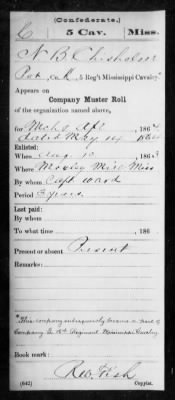 (Confederate.)
C 5 Cav. Miss.
N B Chisholm
Pvt, Co. K, 5 Reg't Mississippi Cavalry*
Appears on
Company Muster Roll
of the organization named above,
for Mch & Apl, 1864
dated May 14 1864
Enlisted:
When Aug 10, 1863
Where Mobley Mill Miss
By whom Capt. Ward
Period 3 years
Last paid:
By whom
To what time , 186
Present or absent Present
Remarks:
*This company subsequently became a part of
Company 18th Regiment Mississippi Cavalry
Book mark:
R. W. Fish
(642) Copyist.